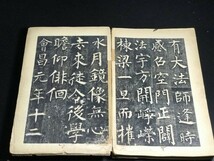 有大法師逢時
感召空門正闢
法宇方開崢嶸
棟梁一旦而摧
水月鏡像無心
去來徒令後學
瞻仰俳佪
會昌元年十二